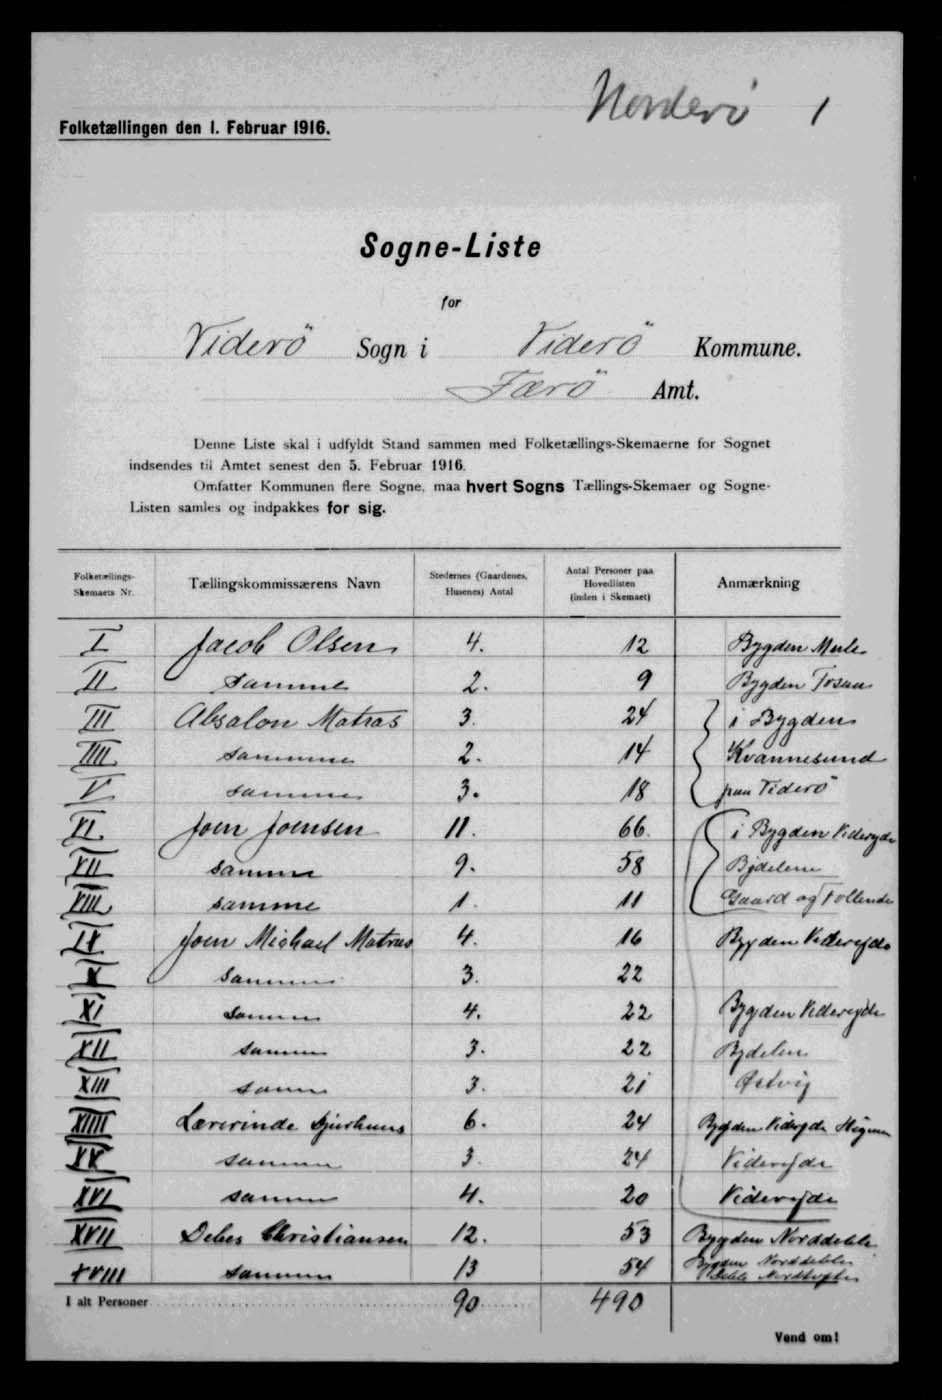 Norderö 1
Folketællingen den 1. Februar 1916.
Sogne-Liste
for
Viderö Sogn i Viderö Kommune.
Færö Amt.
Denne Liste skal i udfyldt Stand sammen med Folketællings-Skemaerne for Sognet
indsendes til Amtet senest den 5. Februar 1916.
Omfatter Kommunen flere Sogne, maa hvert Sogns Tællings-Skemaer og Sogne-
Listen samles og indpakkes for sig.
Folketællings-Skemaets Nr. Tællingskommissærens Navn Stedernes (Gaardenes, Husenes) Antal Antal Personer paa Hovedlisten (inden i Skemaet) Anmærkning
I Jacob Olsen 4. 12 Bygden Mule
II samme 2. 9 Bygden
III Absalon Matras 3. 24 i Bygden
IIII samme 2. 14 Kvannesund
V samme 3. 18 paa Viderö
VI Joen Joensen 11. 66. i Bygden Viderejde
VII samme 9. 58 Bydelene
VIII samme 1. 11 Gaard og
IX Joen Michael Matras 4. 16 Bygden Viderejde
X samme 3. 22
XI samme 4. 22 Bygden Viderejde
XII samme 3. 22 Bydelen
XIII samme 3. 21 Østvig
XIIII Lærerinde Djurhuus 6. 24 Bygden Viderejde
XV samme 3. 24 Viderejde
XVI samme 4. 20 Viderejde
XVII Debes Christiansen 12. 53 Bygden Norddeble
XVIII samme 13 54 Bygden Norddeble
I alt Personer 90 490
Vend om!